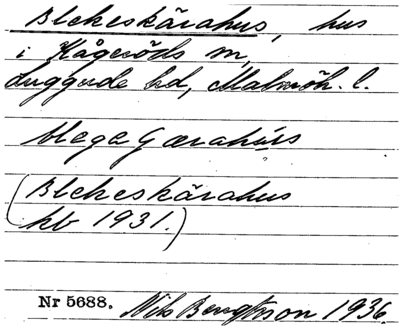 Blekeskärahus, hus
i Kågeröds sn,
Luggude hd, Malmöh. l.
blegaGærahús
(Blekeskärahus
kb 1931.)
Nr 5688. Nils Bengtsson 1936.